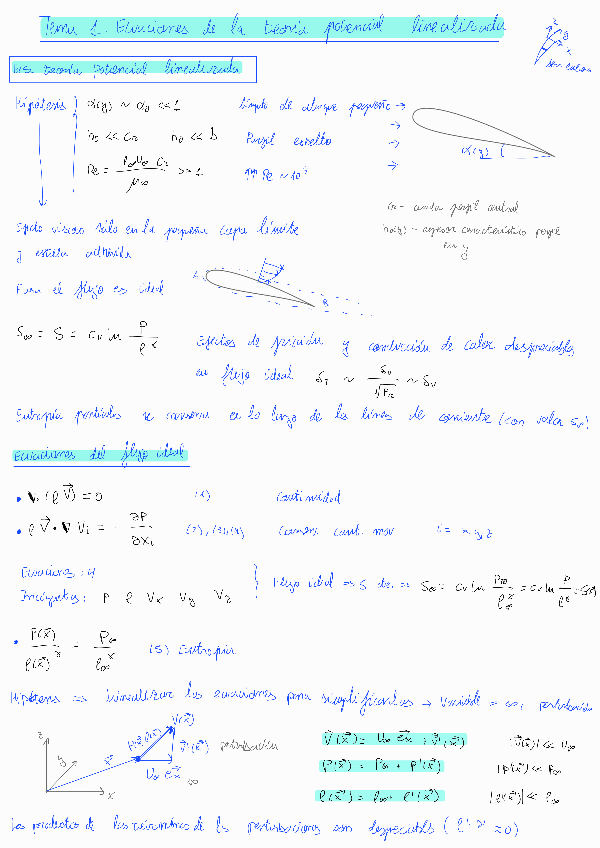 Tema 1. Ecuaciones de la teoría potencial linealizada
teoría potencial linealizada
Hipótesis } α(y) ~ α₀ << 1 ángulo de ataque pequeño →
<< Cr << b Perfil esbelto →
Re = ρ∞ U∞ Cr / μ∞ >> 1 Re ~ 10
α(y)
Cr - cuerda perfil central
(y) - espesor característico perfil
en y
Efecto viscoso sólo en la pequeña capa límite
y estela
A
B
Fuera el flujo es ideal
S∞ = S = Cv ln P / ρ^γ
Efectos de fricción y conducción de calor despreciables
en flujo ideal δT ~ δv / √Pr ~ δv
Entropía se conserva en lo largo de las líneas de corriente (con valor S∞)
Ecuaciones del flujo ideal
• ∇·(ρ V⃗) = 0 (1) Continuidad
• ρ V⃗ · ∇ Vi = - ∂P / ∂xi (2), (3), (4) cant. mov i = x, y, z
Ecuaciones: 4
Incógnitas: P ρ Vx Vy Vz
} Flujo ideal => S => S∞ = Cv ln P∞ / ρ∞^γ = Cv ln P / ρ^γ
• P(x⃗) / ρ(x⃗)^γ = P∞ / ρ∞^γ (5) Entropía
Hipótesis => linealizar las ecuaciones para simplificarlas → Variable = ∞ + perturbación
z
y
x
V(x⃗)
V⃗'(x⃗) perturbación
U∞ e⃗x
∞
V⃗(x⃗) = U∞ e⃗x + V⃗'(x⃗) |V⃗'(x⃗)| << U∞
P(x⃗) = P∞ + P'(x⃗) |P'(x⃗)| << P∞
ρ(x⃗) = ρ∞ + ρ'(x⃗) |ρ'(x⃗)| << ρ∞
Los productos de las de las perturbaciones son despreciables ( ≈ 0)